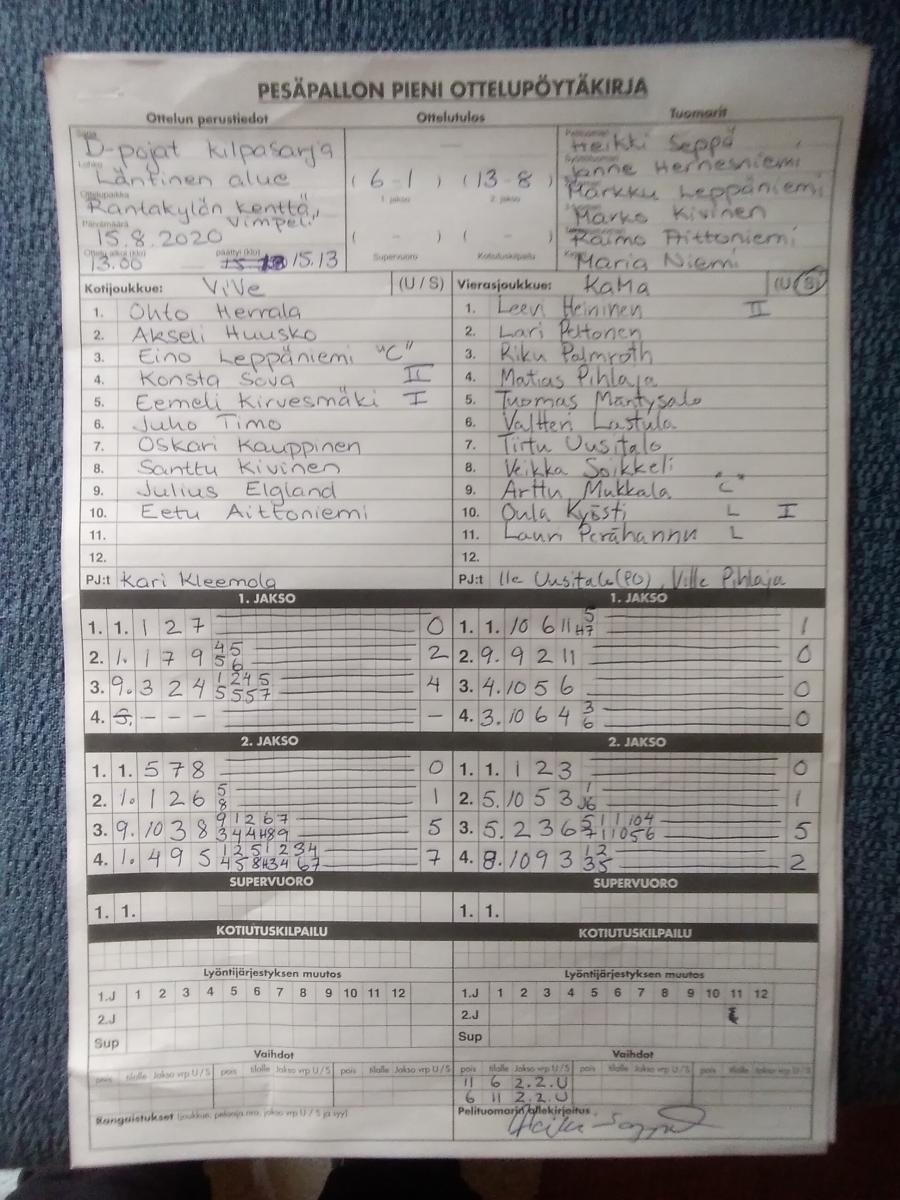 PESÄPALLON PIENI OTTELUPÖYTÄKIRJA
Ottelun perustiedot
Sarja
D-pojat kilpasarja
Lohko
Läntinen alue
Ottelupaikka
Rantakylän kenttä,, Vimpeli
Päivämäärä
15.8.2020
Ottelu alkoi (klo)
13.00
päättyi (klo)
15.13
Ottelutulos
( 6-1 ) ( 13-8 )
1. jakso 2. jakso
( - ) ( - )
Supervuoro Kotiutuskilpailu
Tuomarit
Heikki Seppä
Janne Hernesniemi
Markku Leppäniemi
Marko Kivinen
Raimo Aittoniemi
Maria Niemi
Kotijoukkue: ViVe (U / S)
1. Ohto Herrala
2. Akseli Huusko
3. Eino Leppäniemi "C"
4. Konsta Sova II
5. Eemeli Kirvesmäki I
6. Juho Timo
7. Oskari Kauppinen
8. Santtu Kivinen
9. Julius Elgland
10. Eetu Aittoniemi
11.
12.
PJ:t Kari Kleemola
Vierasjoukkue: KaMa (U / S)
1. Leevi Heininen II
2. Lari Peltonen
3. Riku Palmroth
4. Matias Pihlaja
5. Tuomas Mäntysalo
6. Valtteri Lastula
7. Tirtu Uusitalo
8. Veikka Soikkeli
9. Arttu Mukkala "C"
10. Oula Kyösti L I
11. Lauri Perähannu L
12.
PJ:t Ile Uusitalo (PO), Ville Pihlaja
1. JAKSO
1. 1. 1 2 7 0
2. 1. 1 7 9 4 5 2
5 6
3. 9. 3 2 4 1 2 4 5 4
5 5 5 7
4. 5. - - - -
1. JAKSO
1. 1. 10 6 11 5 1
H7
2. 9. 9 2 11 0
3. 4. 10 5 6 0
4. 3. 10 6 4 3 0
6
2. JAKSO
1. 1. 5 7 8 0
2. 1. 1 2 6 5 1
8
3. 9. 10 3 8 9 1 2 6 7 5
3 4 4 H8 9
4. 1. 4 9 5 1 2 5 1 2 3 4 7
4 5 8 H3 4 6 7
2. JAKSO
1. 1. 1 2 3 0
2. 5. 10 5 3 1 1
J6
3. 5. 2 3 6 5 1 1 10 4 5
7 1 10 5 6
4. 8. 10 9 3 1 2 2
3 5
SUPERVUORO
1. 1.
SUPERVUORO
1. 1.
KOTIUTUSKILPAILU
KOTIUTUSKILPAILU
Lyöntijärjestyksen muutos
1.J 1 2 3 4 5 6 7 8 9 10 11 12
2.J
Sup
Lyöntijärjestyksen muutos
1.J 1 2 3 4 5 6 7 8 9 10 11 12
2.J
Sup
Vaihdot
pois tilalle Jakso vrp U / S pois tilalle Jakso vrp U / S pois tilalle Jakso vrp U / S
Vaihdot
pois tilalle Jakso vrp U / S pois tilalle Jakso vrp U / S pois tilalle Jakso vrp U / S
11 6 2.2.U
6 11 2.2.U
Rangaistukset (joukkue, pelaaja nro, jakso vrp U / S ja syy)
Pelituomarin allekirjoitus